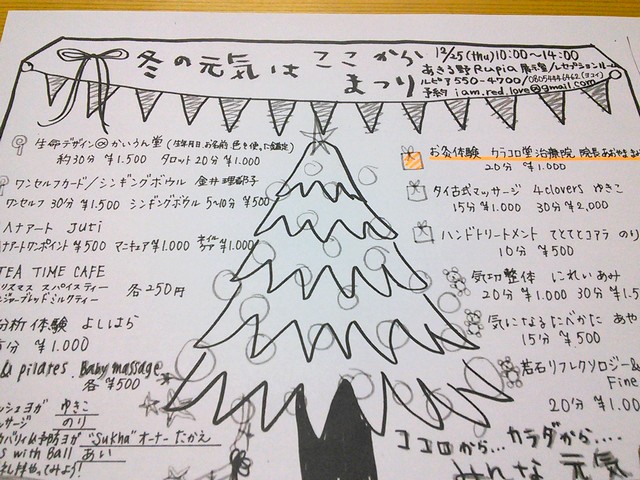 冬の元気は ここから
まつり
12/25(thu)10:00〜14:00
あきる野Rupia 展示室/レセプションルーム
ルピア 550-4700/08054446462(ヨコイ)
予約 iam.red.love@gmail.com
生命デザイン かいうん堂 (生年月日、お名前、色を使った鑑定)
約30分 ¥1.500 タロット20分 ¥1.000
ワンセルフカード/シンギングボウル 金井理都子
ワンセルフ 30分 ¥1.500 シンギングボウル 5〜10分 ¥500
ヘナアート Juti
ナアートワンポイント ¥500 マニキュア ¥1.000 ネイルケア ¥1.000
TEA TIME CAFE
リスマス スパイスティー
ジャーブレッドミルクティー 各250円
分析体験 よしはら
分 ¥1.000
& pilates Baby massage
各 ¥500
ッシュヨガ ゆきこ
ッサージ のり
予防ヨガ "Sukha"オーナー たかえ
s with Ball あい
やってみよう!
お灸体験 カラコロ堂治療院 院長あおやま
20分 ¥1.000
タイ古式マッサージ 4clovers ゆきこ
15分 ¥1.000 30分 ¥2,000
ハンドリートメント てとてとコアラ のり
10分 ¥500
気功整体 にれい あみ
20分 ¥1.000 30分 ¥1.5
気になるたべかた あや
15分 ¥.500
若石リフレクソロジー&
Fine
20分 ¥1.00
ココロから… カラダから….
みんな元気